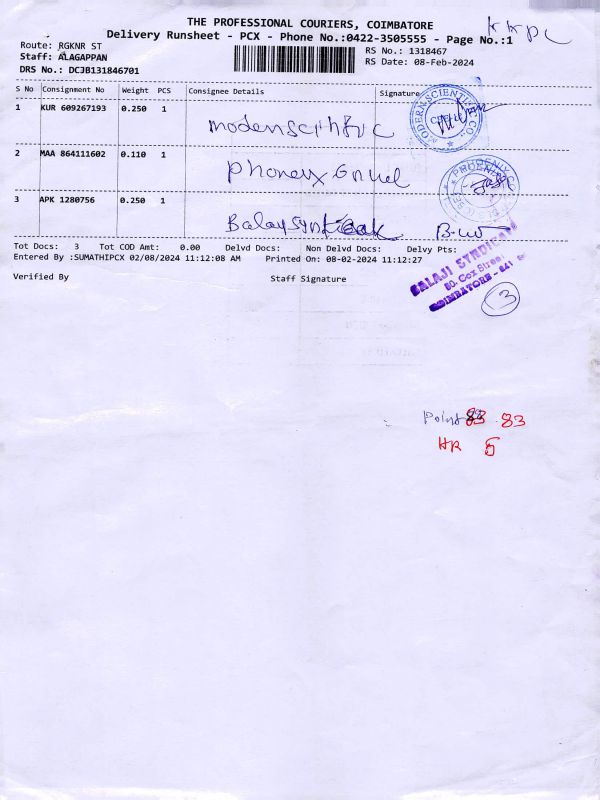 THE PROFESSIONAL COURIERS, COIMBATORE
Delivery Runsheet - PCX - Phone No.:0422-3505555 - Page No.:1
Route: RGKNR ST
RS No.: 1318467
Staff: ALAGAPPAN
RS Date: 08-Feb-2024
DRS No.: DCJB131846701
S No Consignment No Weight PCS Consignee Details Signature
1 KUR 609267193 0.250 1
2 MAA 864111602 0.110 1
3 APK 1280756 0.250 1
Tot Docs: 3 Tot COD Amt: 0.00 Delvd Docs: Non Delvd Docs: Delvy Pts:
Entered By :SUMATHIPCX 02/08/2024 11:12:08 AM Printed On: 08-02-2024 11:12:27
Verified By Staff Signature
BALAJI SYNDICATE
80, Cox Street
COIMBATORE - 641
3
Point 83 83
HR 5